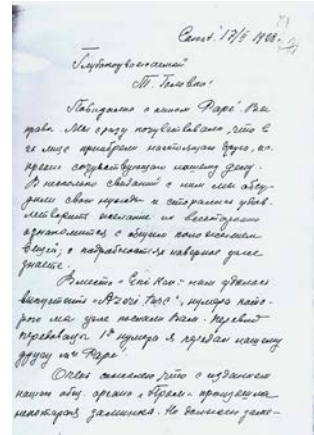 17/II 1928
Глубокоуважаемый
Т. Головко!
Повидались с мисом Papé. Вы
правы. Мы сразу почувствовали, что в
его лице приобрели настоящего друга,
сочувствующего нашему делу.
В несколько свиданий с ним мы обсу-
дили свои нужды и старались удов-
летворить желание их всесторонне
ознакомиться с общим положением
вещей; с подробностями наверное уже
знаете.
Вместо "Eni Kav." нам удалось
выпустить "Azeri Turc", номера кото-
рого мы уже послали Вам. Перевод
передовицы 1го номера я передал нашему
другу Papé.
Очень сожалею, что с изданием
нашего общ. органа "Пром" произошла
некоторая заминка. Но должен заме-